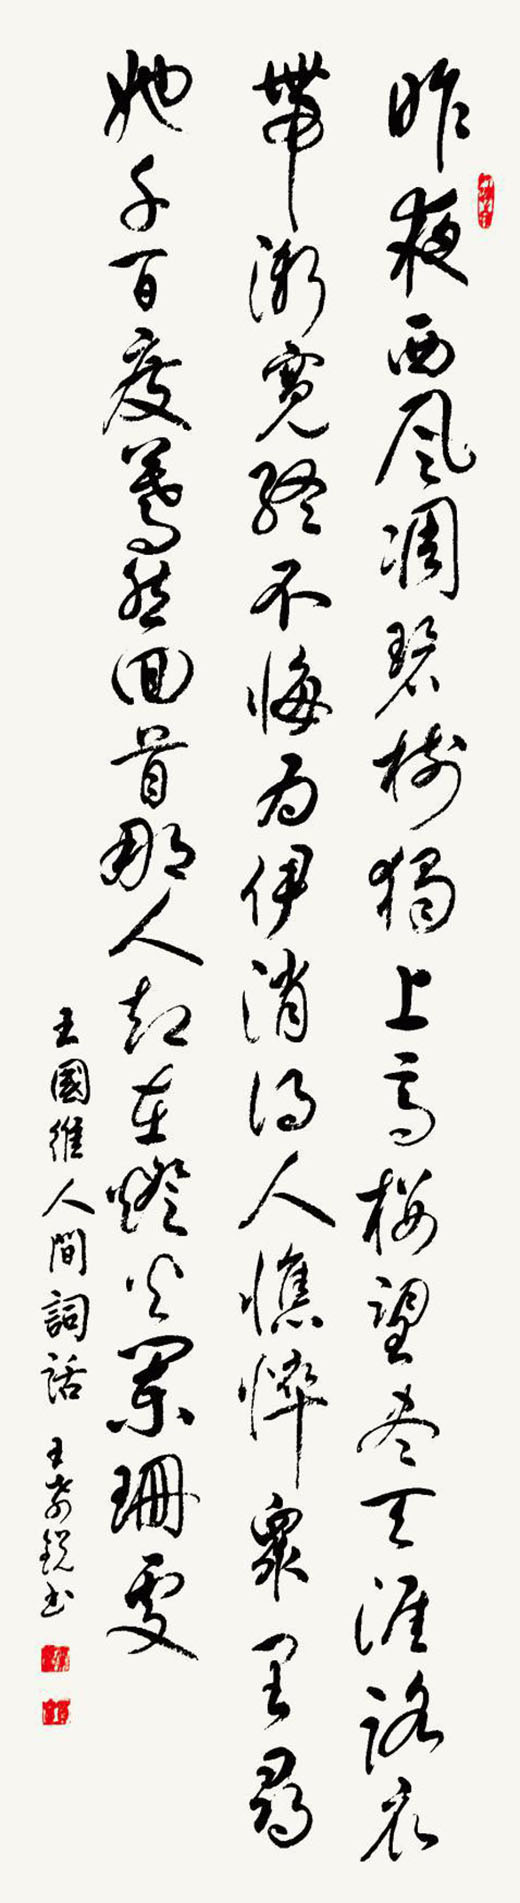 昨夜西風凋碧樹獨上高樓望尽天涯路衣
帶漸寬終不悔為伊消得人憔悴衆里尋
她千百度驀然回首那人却在燈火闌珊處
王國維人間詞話 王銳书